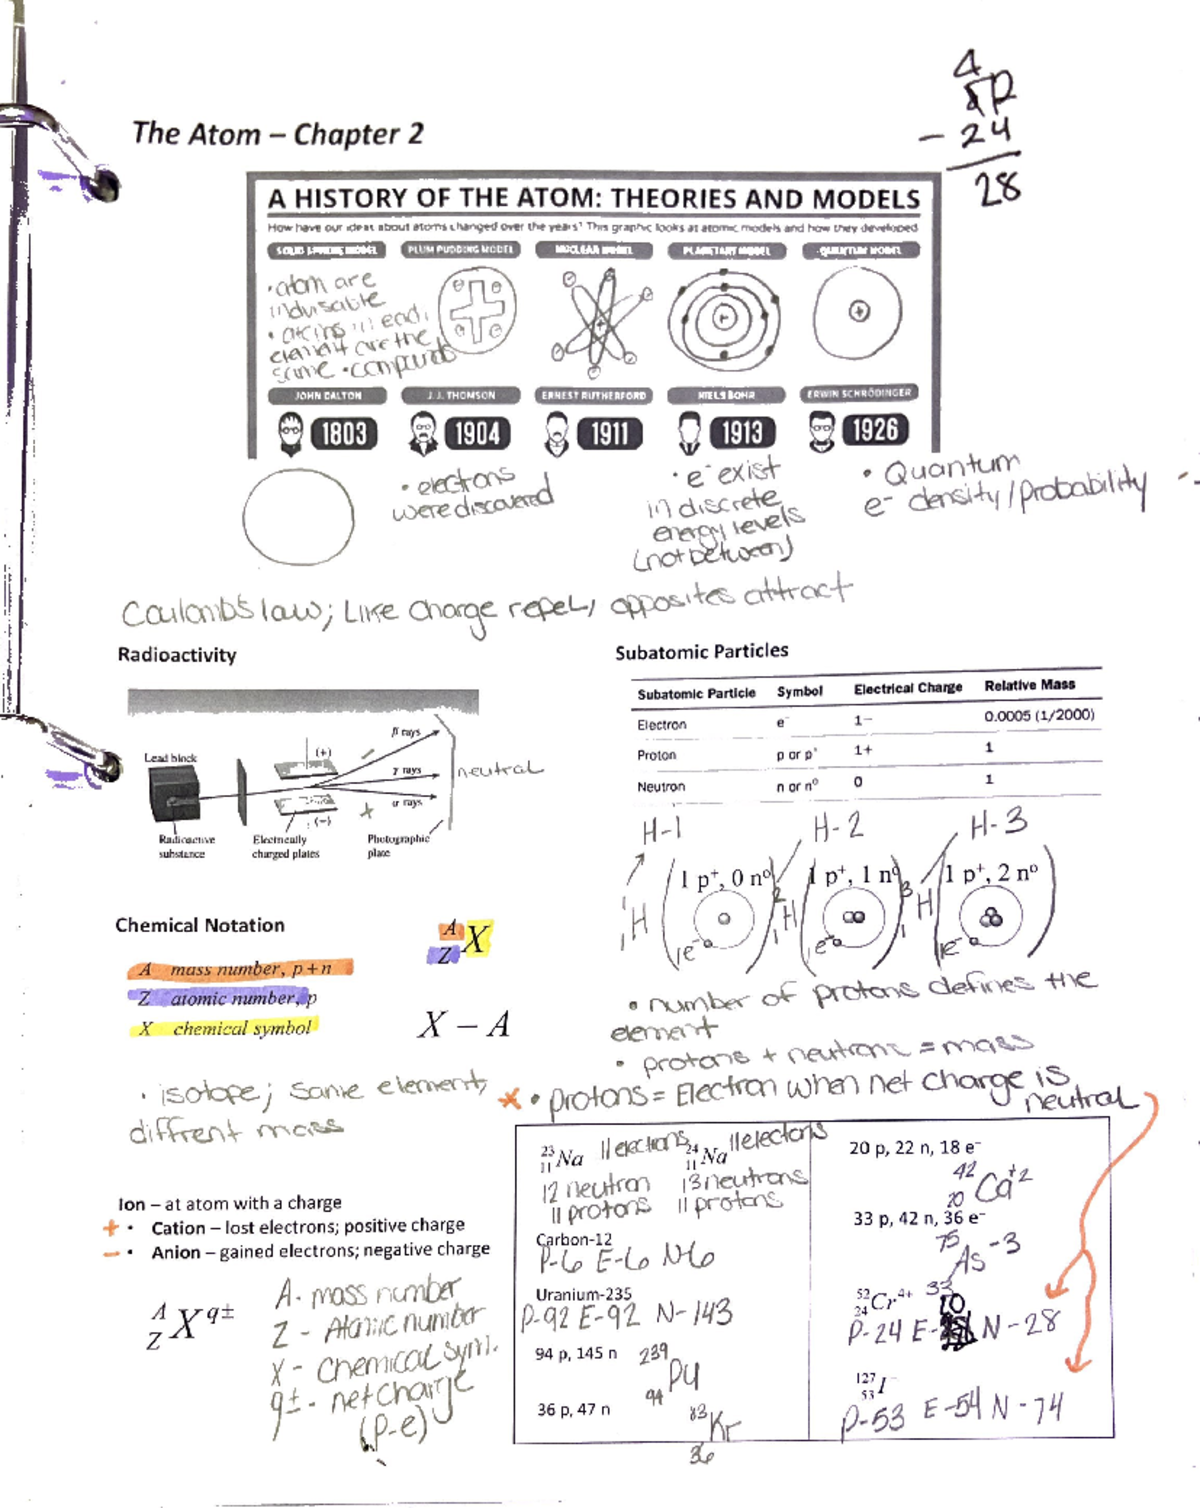 4
5P
- 24
28
The Atom – Chapter 2
A HISTORY OF THE ATOM: THEORIES AND MODELS
How have our ideas about atoms changed over the years? This graphic looks at atomic models and how they developed
SOLID SPHERE MODEL
PLUM PUDDING MODEL
NUCLEAR MODEL
PLANETARY MODEL
QUANTUM MODEL
• atom are
indivisable
• atoms in each
element are the
same • compounds
JOHN DALTON
J. J. THOMSON
ERNEST RUTHERFORD
NIELS BOHR
ERWIN SCHRÖDINGER
1803
1904
1911
1913
1926
• electrons
were discovered
• e⁻ exist
in discrete
energy levels
(not between)
• Quantum
e⁻ density/probability
Coulomb's law; Like charge repel, opposites attract
Radioactivity
Lead block
(+)
(-)
β rays
γ rays
α rays
neutral
Radioactive
substance
Electrically
charged plates
Photographic
plate
Subatomic Particles
Subatomic Particle Symbol Electrical Charge Relative Mass
Electron e⁻ 1− 0.0005 (1/2000)
Proton p or p⁺ 1+ 1
Neutron n or n⁰ 0 1
H-1 H-2 H-3
1 p⁺, 0 n⁰ 1 p⁺, 1 n⁰ 1 p⁺, 2 n⁰
¹₁H ²₁H ³₁H
1e⁻ e⁻ 1e⁻
• number of protons defines the
element
• protons + neutrons = mass
* • protons = Electron when net charge is
neutral
Chemical Notation
A mass number, p+n
Z atomic number, p
X chemical symbol
A
Z X
X – A
• isotope; same element,
diffrent mass
Ion – at atom with a charge
+ • Cation – lost electrons; positive charge
− • Anion – gained electrons; negative charge
A
Z X q±
A - mass number
Z - Atomic number
X - chemical symb.
q± - net charge
(p-e)
²³₁₁Na 11 electrons ²⁴₁₁Na 11 electrons
12 neutron 13 neutrons
11 protons 11 protons
Carbon-12
P-6 E-6 N-6
Uranium-235
P-92 E-92 N-143
94 p, 145 n ²³⁹₉₄Pu
36 p, 47 n ⁸³₃₆Kr
20 p, 22 n, 18 e⁻
⁴²₂₀Ca⁺²
33 p, 42 n, 36 e⁻
⁷⁵₃₃As⁻³
⁵²₂₄Cr⁴⁺
P-24 E-20 N-28
¹²⁷₅₃I⁻
P-53 E-54 N-74